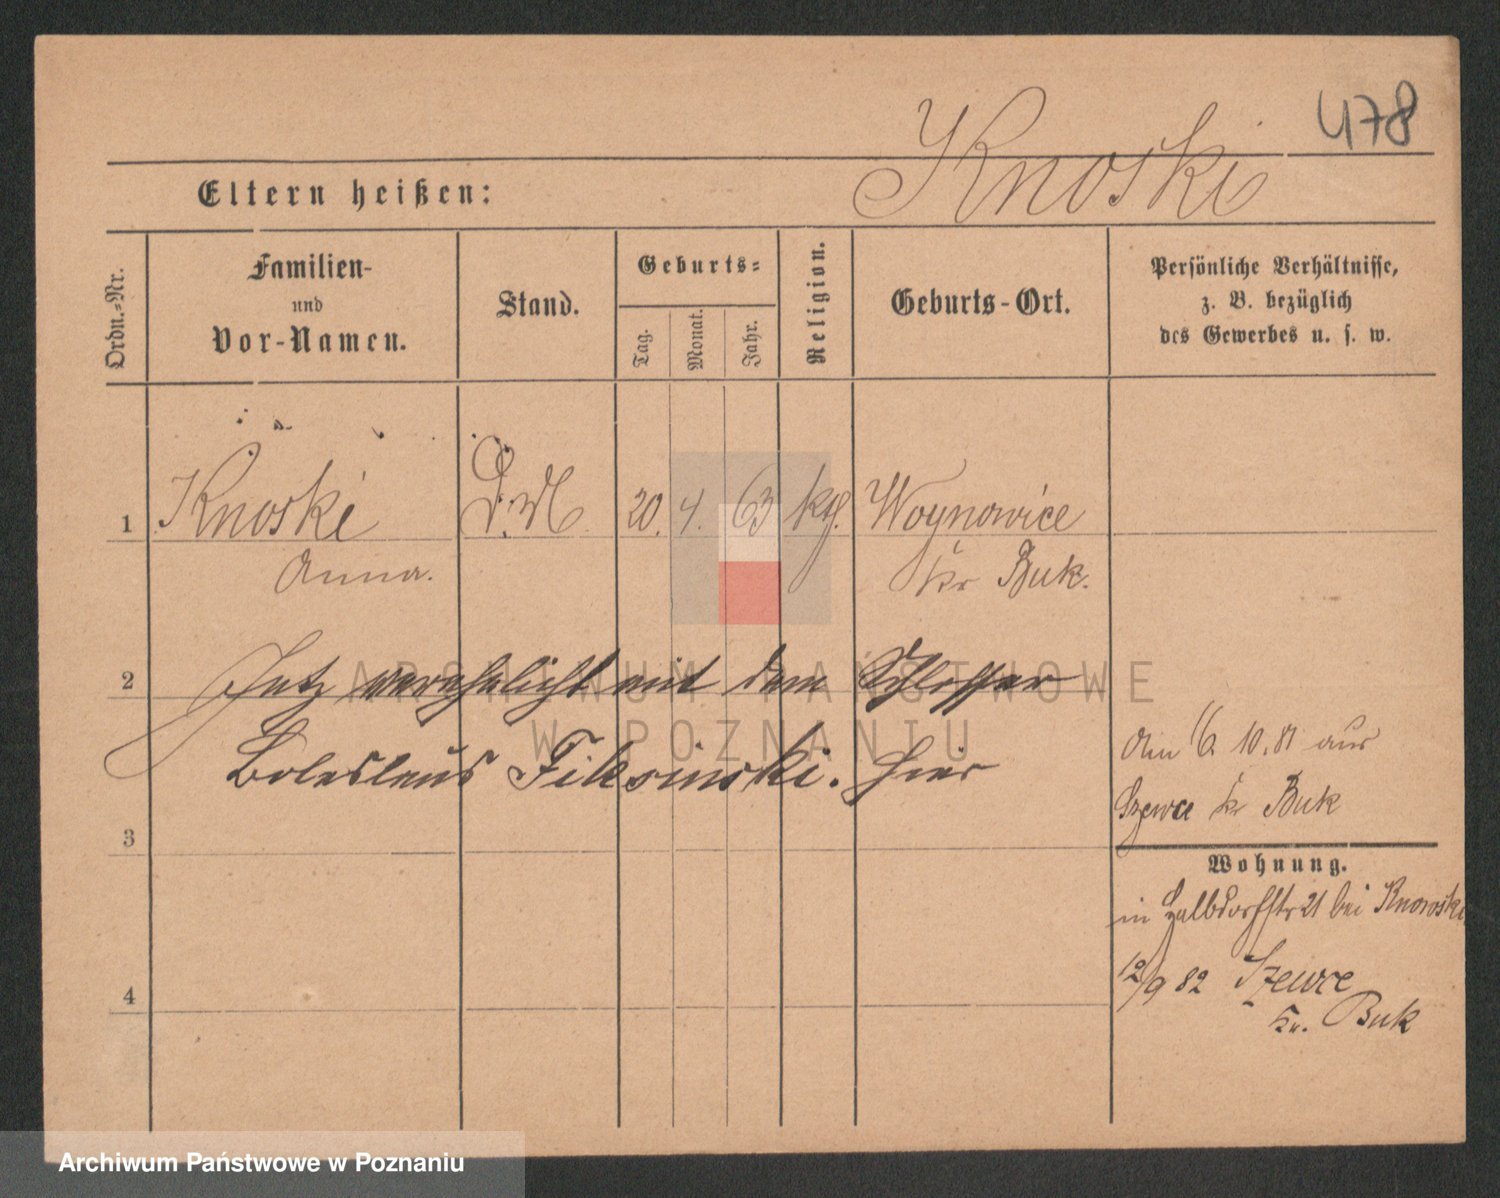 478
Knoski
Eltern heißen:
Ordn.-Nr.
Familien-
und
Vor-Namen.
Stand.
Geburts-
Tag.
Monat.
Jahr.
Religion.
Geburts-Ort.
Persönliche Verhältnisse,
z. B. bezüglich
des Gewerbes u. s. w.
1 Knoski D.M. 20. 4. 63 kg. Woynowice
Anna. Kr Buk.
2 Jetz verehelicht mit dem Schlosser
Boleslaus Filesinski. hier
Am 6. 10. 81 aus
Szewce Kr Buk
3
Wohnung.
in Halbdorfstr 21 bei Knowski
12/9 82 Szewce
Kr. Buk
4
ARCHIWUM PAŃSTWOWE
W POZNANIU
Archiwum Państwowe w Poznaniu